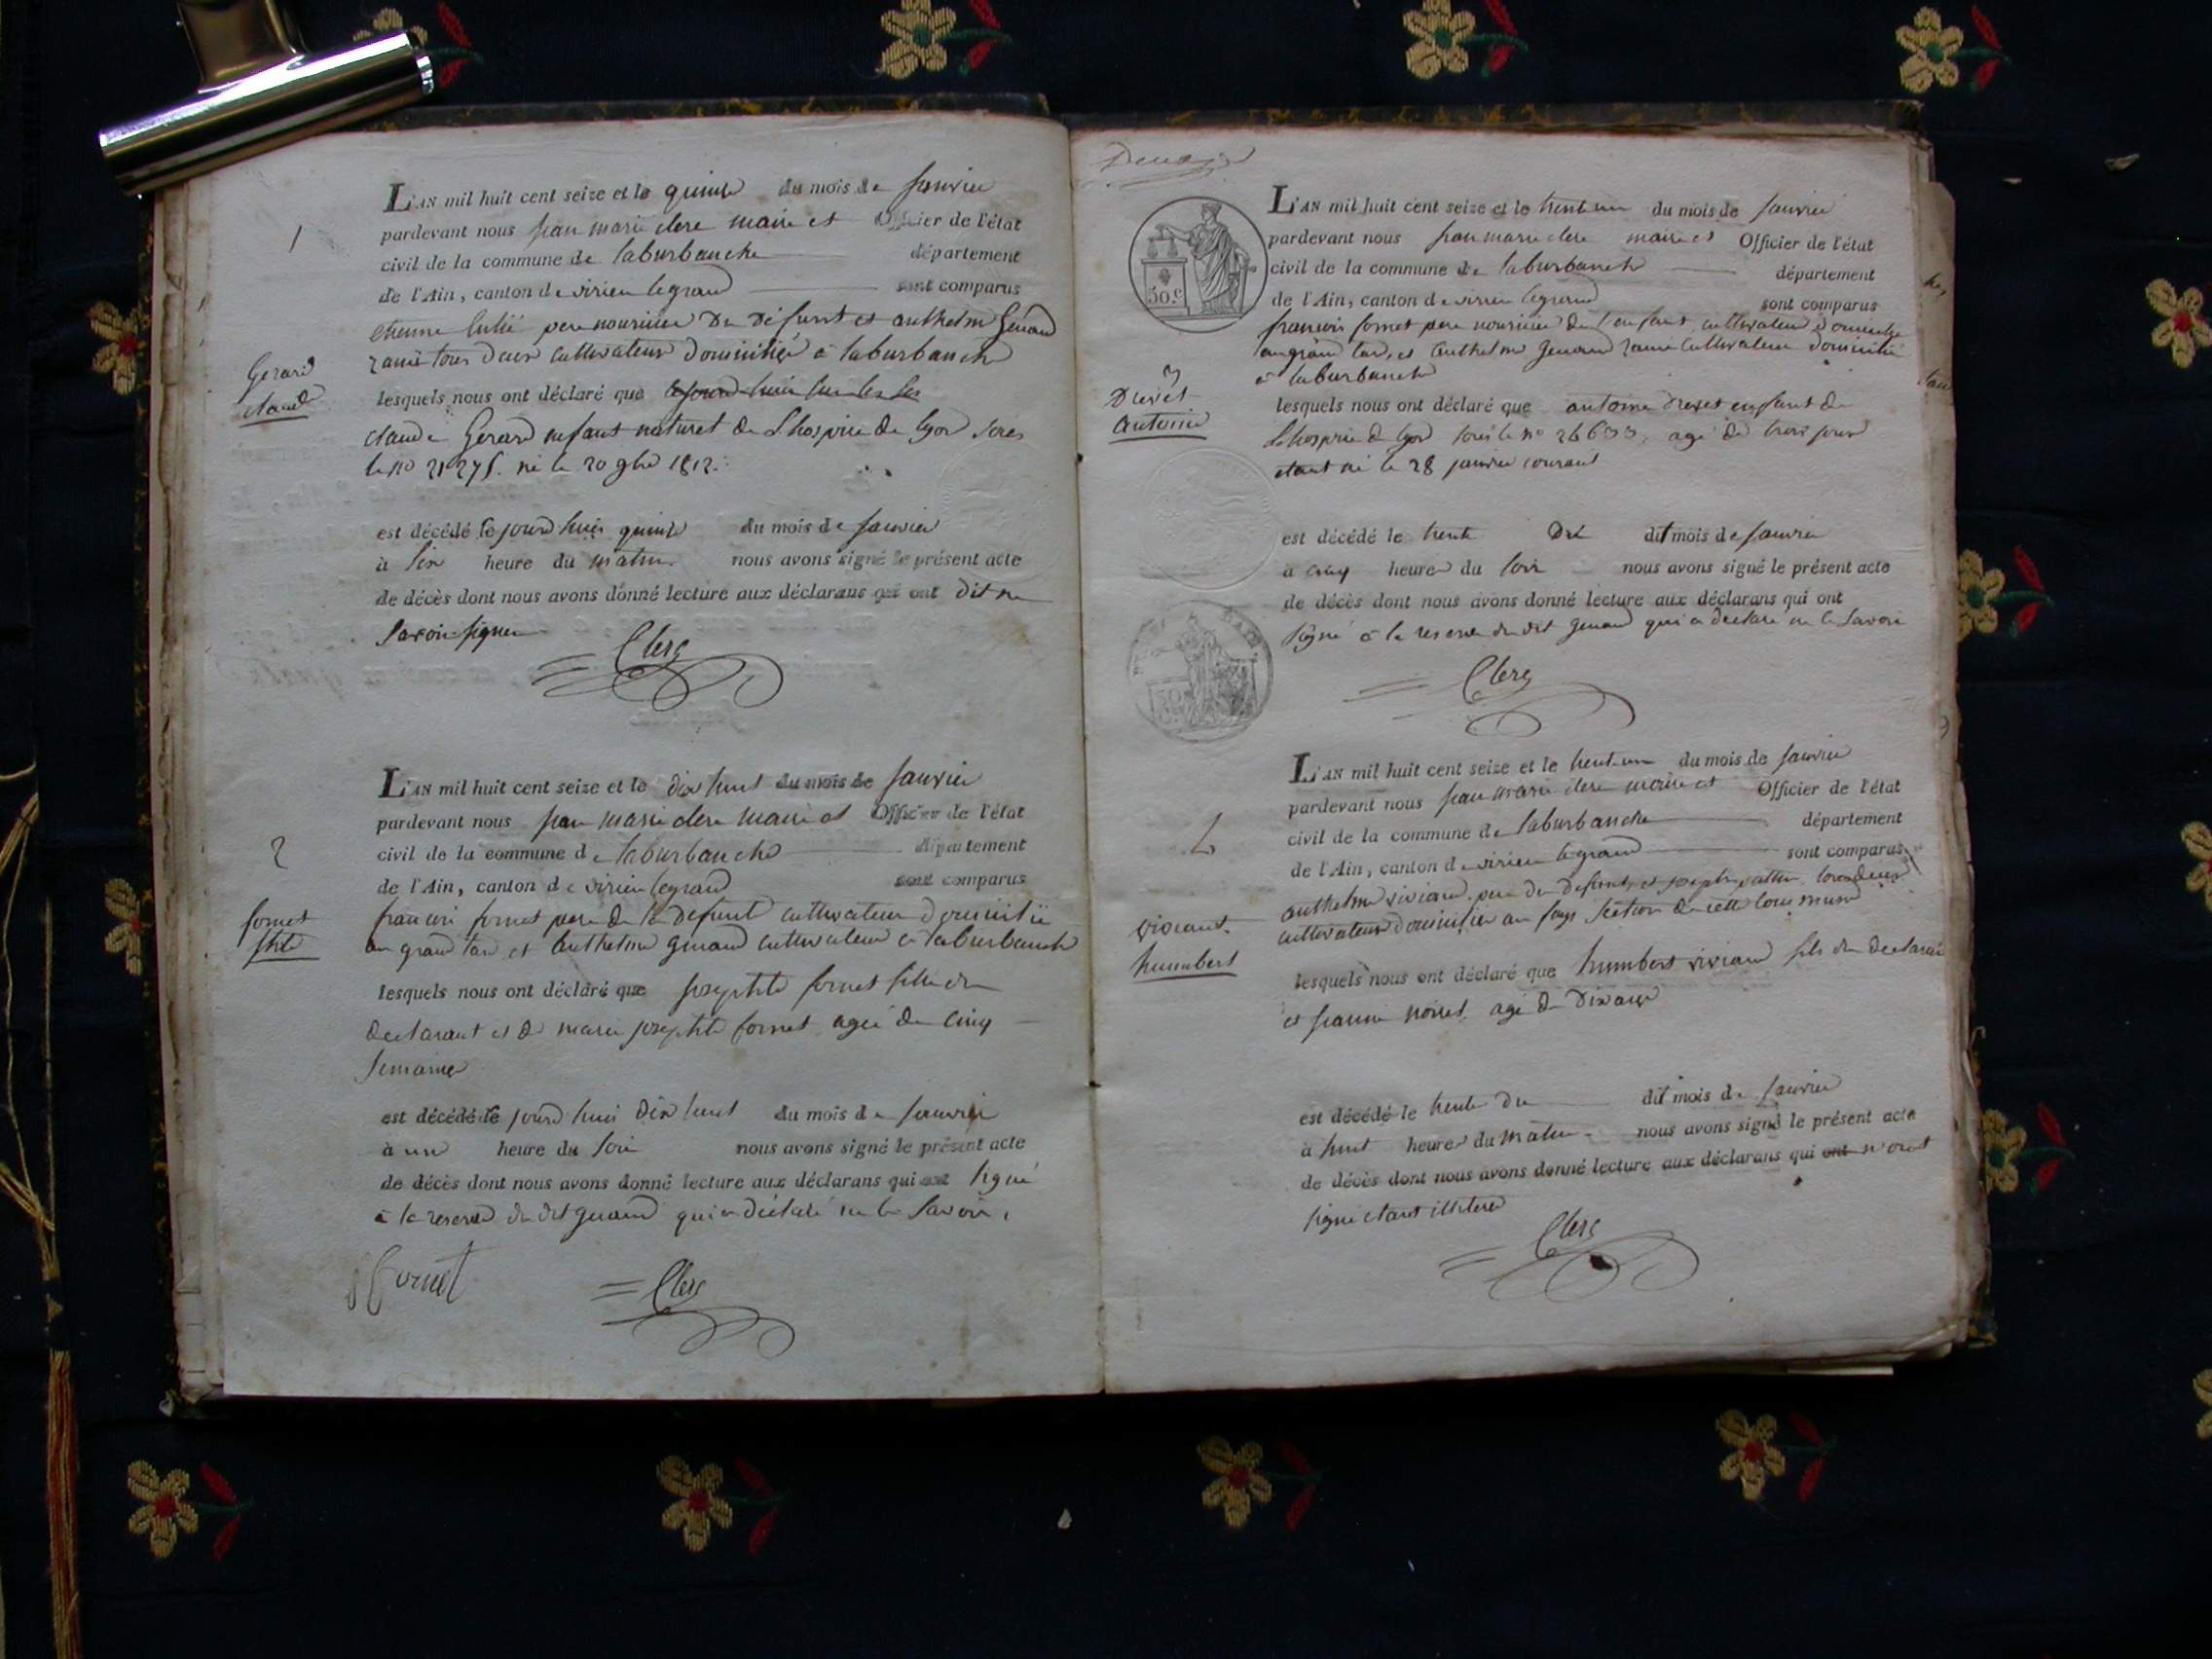 1
L'AN mil huit cent seize et le quinze du mois de janvier
pardevant nous jean marie clerc maire et Officier de l'état
civil de la commune de laburbanche département
de l'Ain, canton de virieu legrand sont comparus
père nouricier du défunt et anthelme
tous deux cultivateurs à laburbanche
Gerard
claude
lesquels nous ont déclaré que
claude Gerard enfant naturel de L'hospice de lyon sous
le no 21275. né le 20 9bre 1812.
est décédé le jourd'huis quinze du mois de janvier
à six heure du matin nous avons signé le présent acte
de décès dont nous avons donné lecture aux déclarans qui ont dit ne
savoir signer
Clerc
2
L'AN mil huit cent seize et le dix huit du mois de janvier
pardevant nous jean marie clerc maire et Officier de l'état
civil de la commune de laburbanche département
de l'Ain, canton de virieu legrand sont comparus
fornet
françois fornet père de la defunte cultivateur
au grand tard et anthelme cultivateur à laburbanche
lesquels nous ont déclaré que josephte fornet fille du
declarant et de marie josephte fornet agée de cinq
semaines
est décédé le jourd huis dix huit du mois de janvier
à une heure du soir nous avons signé le présent acte
de décès dont nous avons donné lecture aux déclarans qui ont signé
à la reserve du dit qui a déclaré ne le savoir.
fornet
Clerc
50.c
L'AN mil huit cent seize et le trente un du mois de janvier
pardevant nous jean marie clerc maire et Officier de l'état
civil de la commune de laburbanche département
de l'Ain, canton de virieu legrand sont comparus
françois fornet père nouricier de l'enfant, cultivateur
au grand tard, et anthelme cultivateur
à laburbanche
3
Antoine
lesquels nous ont déclaré que antoine enfant de
L'hospice de lyon sous le no 26633, agé de trois jours
etant né le 28 janvier courant
est décédé le trente dud dit mois de janvier
à cinq heures du soir nous avons signé le présent acte
de décès dont nous avons donné lecture aux déclarans qui ont
signé à la reserve du dit qui a declaré ne le savoir
Clerc
L'AN mil huit cent seize et le trente un du mois de janvier
pardevant nous jean marie clerc maire et Officier de l'état
civil de la commune de laburbanche département
de l'Ain, canton de virieu legrand sont comparus
anthelme viviand père du defunt, et joseph tous deux
cultivateurs au section de cette commune
viviant
humbert
lesquels nous ont déclaré que humbert viviand fils du declarant
et jeanne agé de dix ans
est décédé le trente du dit mois de janvier
à huit heures du matin nous avons signé le présent acte
de décès dont nous avons donné lecture aux déclarans qui ont n'ont
signé etant illiterés
Clerc